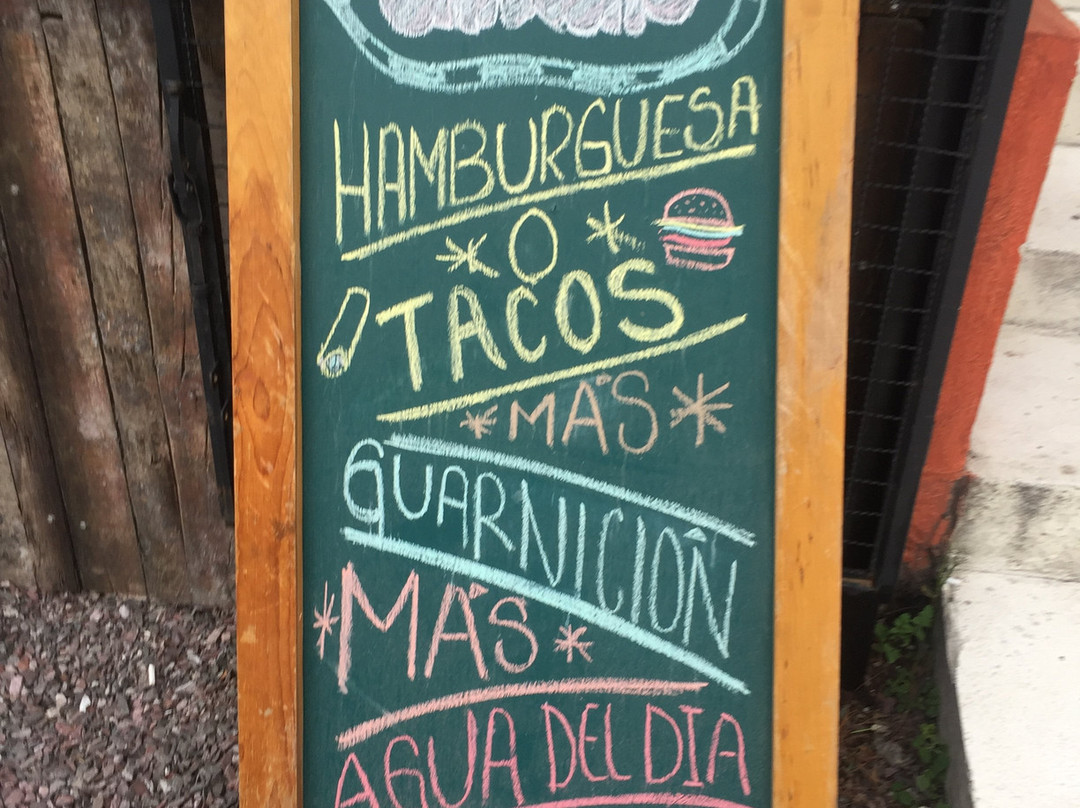 HAMBURGUESA
O
TACOS
MÁS
GUARNICIÓN
MÁS
AGUA DEL DIA